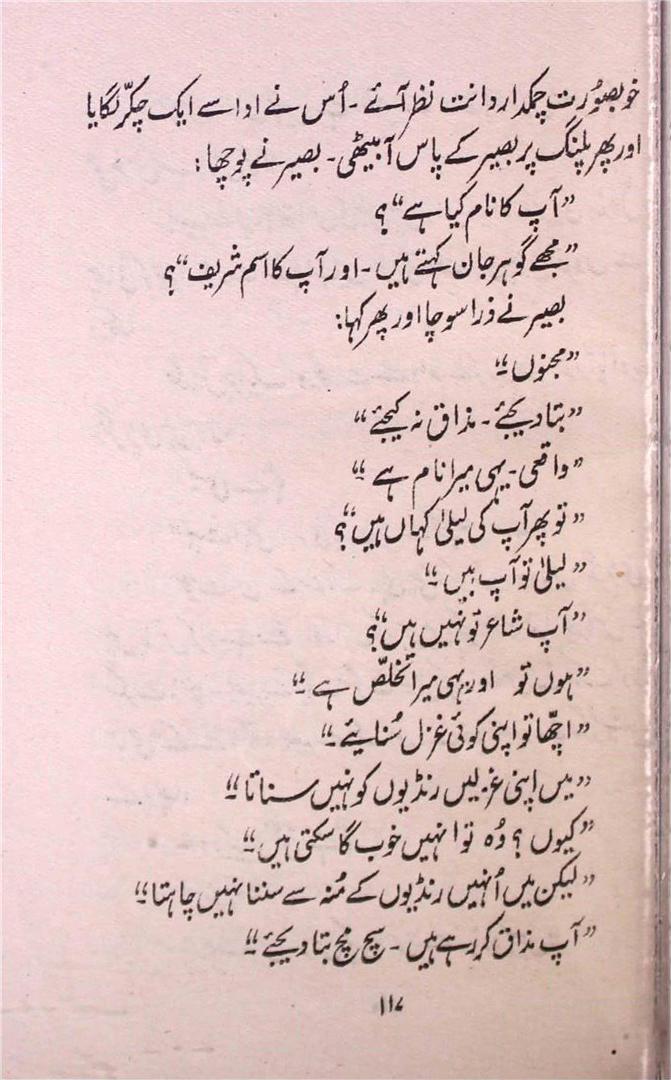 خوبصُورت چمکدار دانت نظر آئے ۔ اُس نے ادا سے ایک چکّر لگایا
اور پھر پلنگ پر بصیر کے پاس آ بیٹھی ۔ بصیر نے پوچھا :
”آپ کا نام کیا ہے“؟
”مجھے گوہر جان کہتے ہیں ۔ اور آپ کا اسم شریف“؟
بصیر نے ذرا سوچا اور پھر کہا :
”مجنوں ۔“
”بتا دیجئے ۔ مذاق نہ کیجئے“
”واقعی ۔ یہی میرا نام ہے ۔“
”تو پھر آپ کی لیلیٰ کہاں ہیں“؟
”لیلیٰ تو آپ ہیں ۔“
”آپ شاعر تو نہیں ہیں“؟
”ہوں تو اور یہی میرا تخلّص ہے ۔“
”اچّھا تو اپنی کوئی غزل سُنایئے ۔“
”میں اپنی غزلیں رنڈیوں کو نہیں سناتا ۔“
”کیوں ؟ وُہ تو انہیں خوب گا سکتی ہیں ۔“
”لیکن میں اُنہیں رنڈیوں کے مُنہ سے سننا نہیں چاہتا ۔“
”آپ مذاق کر رہے ہیں ۔ سچ مچ بتا دیجئے ۔“
۱۱۷